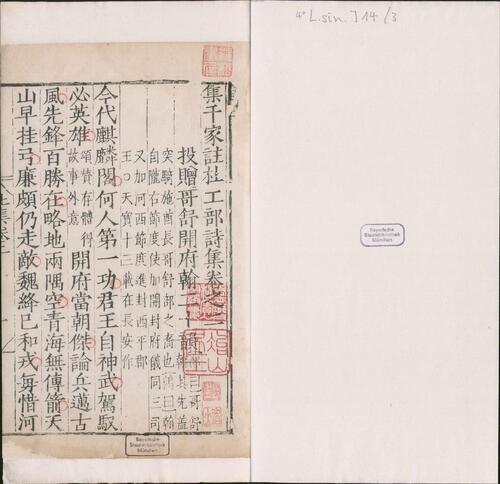 4° L.sin. J 14 (3
Bayerische
Staatsbibliothek
München
集千家註杜工部詩集卷之二
投贈哥舒開府翰二十韻
突騎施酋長哥舒部之裔也
自隴右節度使加開封府儀同三司
又加河西節度進封西平郡
王○天寶十三載在長安作
今代麒麟閣何人第一功君王自神武駕馭
必英雄頌贊存體得
故事外意開府當朝傑論兵邁古
風先鋒百勝在略地兩隅空青海無傳箭天
山早挂弓廉頗仍走敵魏絳已和戎每惜河
Bayerische
Staatsbibliothek
München